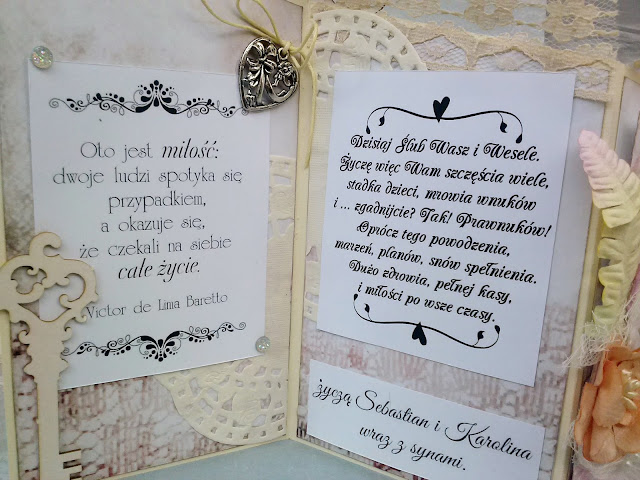 Oto jest miłość:
dwoje ludzi spotyka się
przypadkiem,
a okazuje się,
że czekali na siebie
całe życie.
Victor de Lima Baretto
Dzisiaj Ślub Wasz i Wesele.
Życzę więc Wam szczęścia wiele,
stadka dzieci, mrowia wnuków
i ... zgadnijcie? Tak! Prawnuków!
Oprócz tego powodzenia,
marzeń, planów, snów spełnienia.
Dużo zdrowia, pełnej kasy,
i miłości po wsze czasy.
życzą Sebastian i Karolina
wraz z synami.